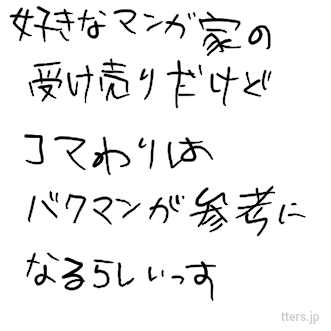 好きなマンガ家の
受け売りだけど
コマわりは
バクマンが参考に
なるらしいっす
tters.jp